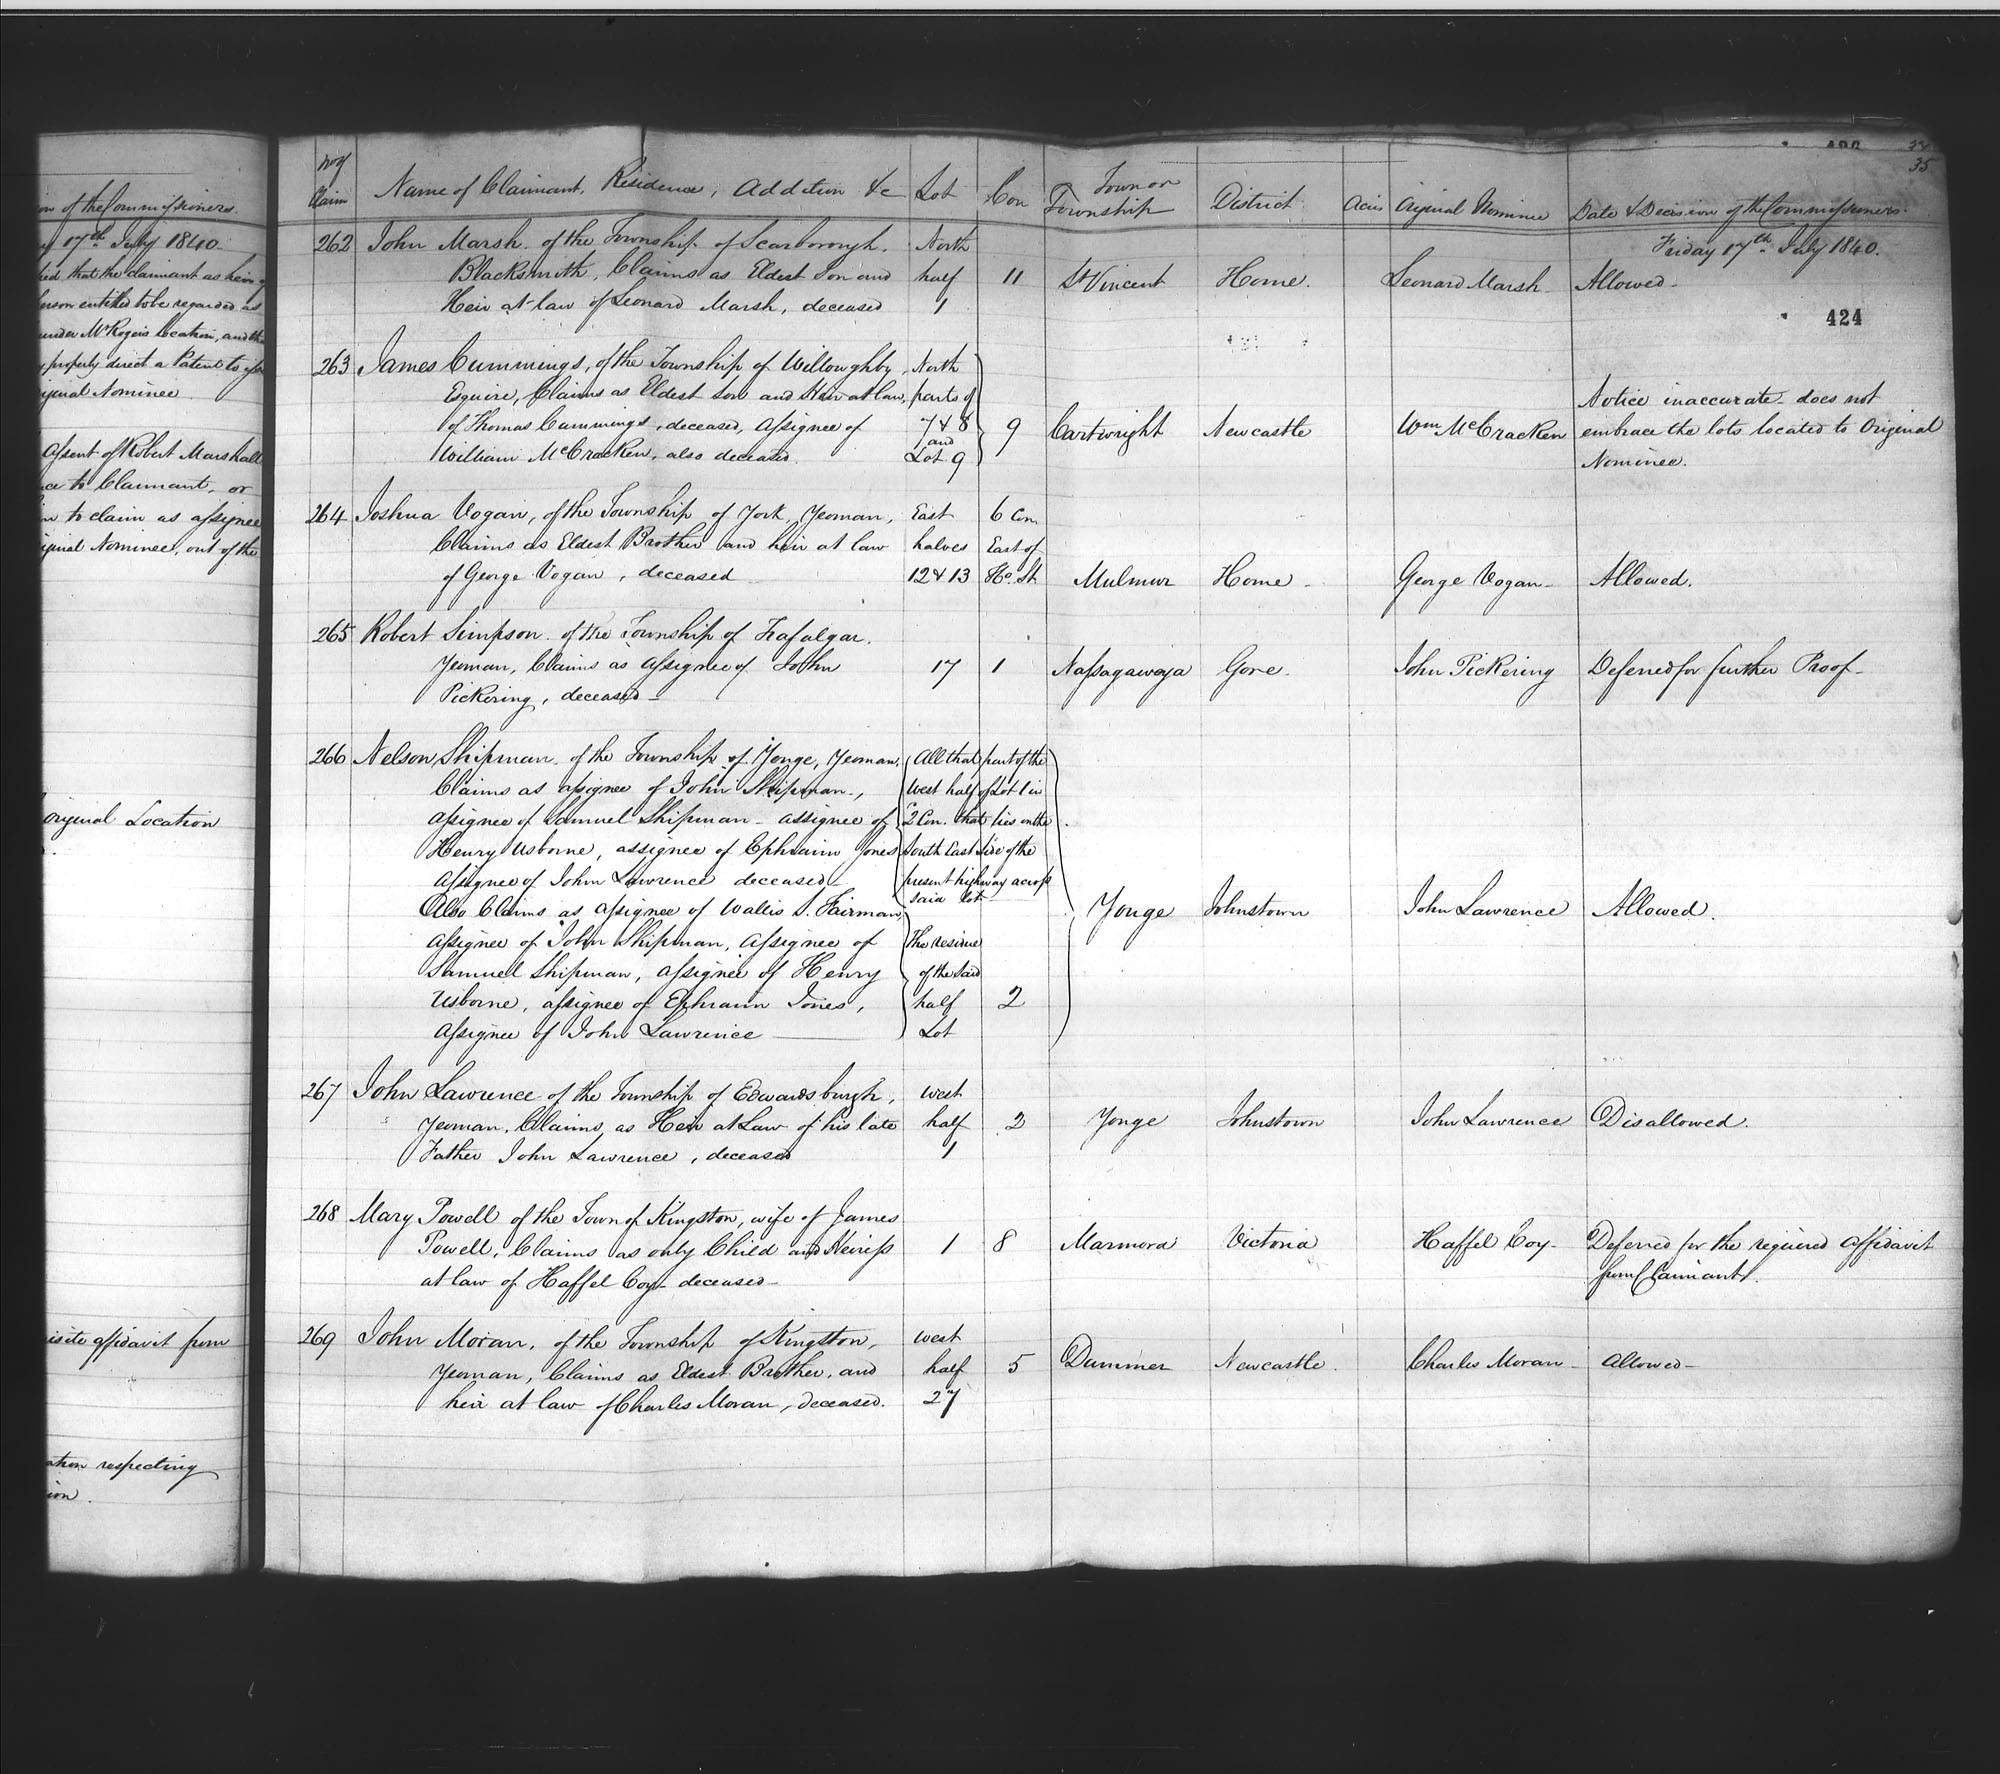 on of the Commissioners.
17th July 1840.
that the claimant as heir
person entitled to be regarded as
under McRogers location, and the
properly direct a Patent to
Nominee
Assent of Robert Marshall
to Claimant, or
to claim as assignee
Nominee, out of the
original Location
affidavit from
respecting
35
No of Claim
Name of Claimant, Residence, Addition &c
Lot
Con
Town or Township
District
Acres
Original Nominee
Date & Decision of the Commissioners.
Friday 17th July 1840.
424
262 John Marsh of the Township of Scarborough. North
Blacksmith, Claims as Eldest Son and half 11 St Vincent Home. Leonard Marsh Allowed.
Heir at law of Leonard Marsh, deceased 1
263 James Cummings, of the Township of Willoughby, North
Esquire, Claims as Eldest Son and Heir at law, parts of Notice inaccurate does not
of Thomas Cummings, deceased, Assignee of 7 & 8 and 9 Cartwright Newcastle Wm McCracken embrace the lots located to Original
William McCracken, also deceased. Lot 9 Nominee.
264 Joshua Vogan, of the Township of York, Yeoman, East 6 Con.
Claims as Eldest Brother and heir at law halves East of
of George Vogan, deceased 12 & 13 Ho. St. Mulmur Home George Vogan Allowed.
265 Robert Simpson of the Township of Trafalgar.
Yeoman, Claims as Assignee of John 17 1 Nassagaweya Gore John Pickering Deferred for further Proof
Pickering, deceased
266 Nelson Shipman of the Township of Yonge, Yeoman. All that part of the
Claims as assignee of John Shipman, West half of Lot 1 in
assignee of Samuel Shipman assignee of 2 Con. that lies on the
Henry Usborne, assignee of Ephraim Jones South East side of the
assignee of John Lawrence deceased present highway across
said lot
Also Claims as assignee of Wallis S. Fairman, Yonge Johnstown John Lawrence Allowed.
assignee of John Shipman, assignee of The residue
Samuel Shipman, assignee of Henry of the said
Usborne, assignee of Ephraim Jones, half 2
assignee of John Lawrence Lot
267 John Lawrence of the Township of Edwardsburgh, West
Yeoman, Claims as Heir at Law of his late half 2 Yonge Johnstown John Lawrence Disallowed.
Father John Lawrence, deceased 1
268 Mary Powell of the Town of Kingston, wife of James
Powell, Claims as only Child and Heiress 1 8 Marmora Victoria Haffel Coy Deferred for the required Affidavit
at law of Haffel Coy deceased from Claimant.
269 John Moran, of the Township of Kingston, West
Yeoman, Claims as Eldest Brother, and half 5 Dummer Newcastle. Charles Moran Allowed
heir at law of Charles Moran, deceased. 27